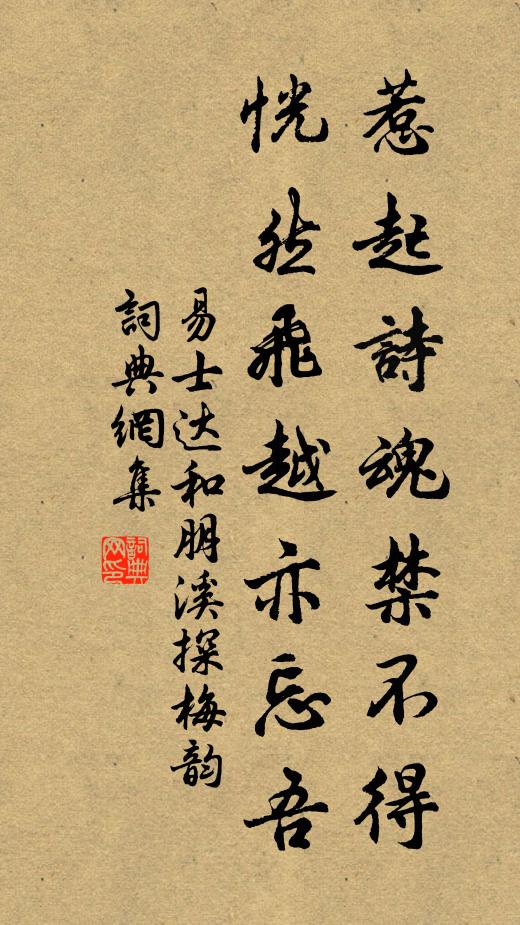 惹起詩魂禁不得
恍然飛越亦忘吾
易士达和朋溪探梅韵
詞典網集
詞典网印